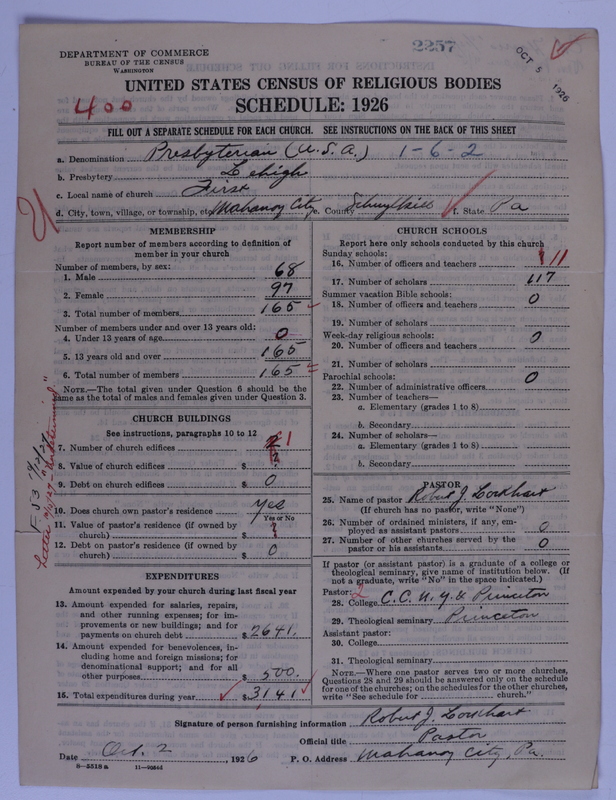 2257
OCT 5 1926
DEPARTMENT OF COMMERCE
BUREAU OF THE CENSUS
WASHINGTON
UNITED STATES CENSUS OF RELIGIOUS BODIES
400
SCHEDULE: 1926
FILL OUT A SEPARATE SCHEDULE FOR EACH CHURCH. SEE INSTRUCTIONS ON THE BACK OF THIS SHEET
a. Denomination Presbyterian (U.S.A.) 1-6-2
b. Presbytery Lehigh
c. Local name of church First
d. City, town, village, or township, etc. Mahanoy City e. County Schuylkill f. State Pa
MEMBERSHIP
Report number of members according to definition of
member in your church
Number of members, by sex:
1. Male 68
2. Female 97
3. Total number of members 165
Number of members under and over 13 years old:
4. Under 13 years of age 0
5. 13 years old and over 165
6. Total number of members 165
NOTE.—The total given under Question 6 should be the
same as the total of males and females given under Question 3.
CHURCH BUILDINGS
See instructions, paragraphs 10 to 12
7. Number of church edifices 1
8. Value of church edifices $ ?
9. Debt on church edifices $ 0
10. Does church own pastor's residence Yes
Yes or No
11. Value of pastor's residence (if owned by
church) $ ?
12. Debt on pastor's residence (if owned by
church) $ 0
EXPENDITURES
Amount expended by your church during last fiscal year
13. Amount expended for salaries, repairs,
and other running expenses; for im-
provements or new buildings; and for
payments on church debt $ 2641.
14. Amount expended for benevolences, in-
cluding home and foreign missions; for
denominational support; and for all
other purposes $ 500.
15. Total expenditures during year $ 3141
CHURCH SCHOOLS
Report here only schools conducted by this church
Sunday schools:
16. Number of officers and teachers 11
17. Number of scholars 117
Summer vacation Bible schools:
18. Number of officers and teachers 0
19. Number of scholars
Week-day religious schools:
20. Number of officers and teachers 0
21. Number of scholars
Parochial schools:
22. Number of administrative officers 0
23. Number of teachers—
a. Elementary (grades 1 to 8)
b. Secondary
24. Number of scholars—
a. Elementary (grades 1 to 8)
b. Secondary
PASTOR
25. Name of pastor Robert J. Lockhart
(If church has no pastor, write "None")
26. Number of ordained ministers, if any, em-
ployed as assistant pastors 0
27. Number of other churches served by the
pastor or his assistants 0
If pastor (or assistant pastor) is a graduate of a college or
theological seminary, give name of institution below. (If
not a graduate, write "No" in the space indicated.)
Pastor: 2
28. College C.C.N.Y. & Princeton
29. Theological seminary Princeton
Assistant pastor:
30. College
31. Theological seminary
NOTE.—Where one pastor serves two or more churches,
Questions 28 and 29 should be answered only on the schedule
for one of the churches; on the schedules for the other churches,
write "See schedule for church."
Signature of person furnishing information Robert J. Lockhart
Official title Pastor
Date Oct. 2, 1926 P. O. Address Mahanoy City, Pa.
8—2518 a